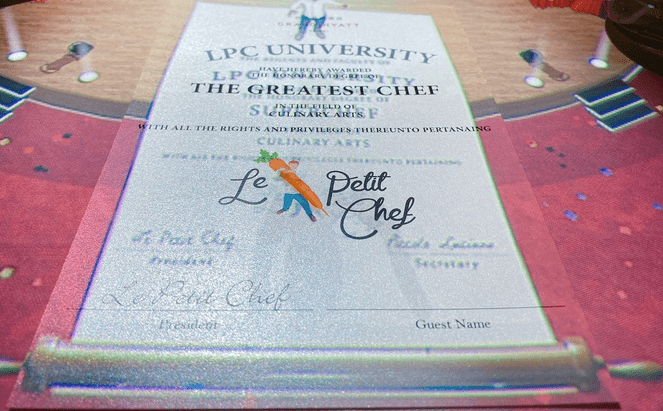 GRAND HYATT
LPC UNIVERSITY
THE REGENTS AND FACULTY OF
HAVE HEREBY AWARDED
LPC UNIVERSITY
THE HONORARY DEGREE OF
THE GREATEST CHEF
THE HONORARY DEGREE OF
IN THE FIELD OF
CULINARY ARTS
WITH ALL THE RIGHTS AND PRIVILEGES THEREUNTO PERTANAING
CULINARY ARTS
WITH ALL THE RIGHTS AND PRIVILEGES THEREUNTO PERTAINING
Le Petit
Chef
Le Petit Chef
President
Secretary
Le Petit Chef
President
Guest Name